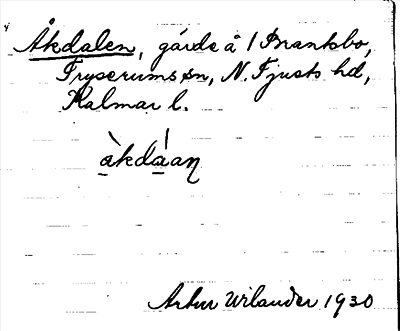 Åkdalen, gärde å 1 Branksbo,
Fryserums sn, N. Tjusts hd,
Kalmar l.
àkdáan
Arthur Wilander 1930